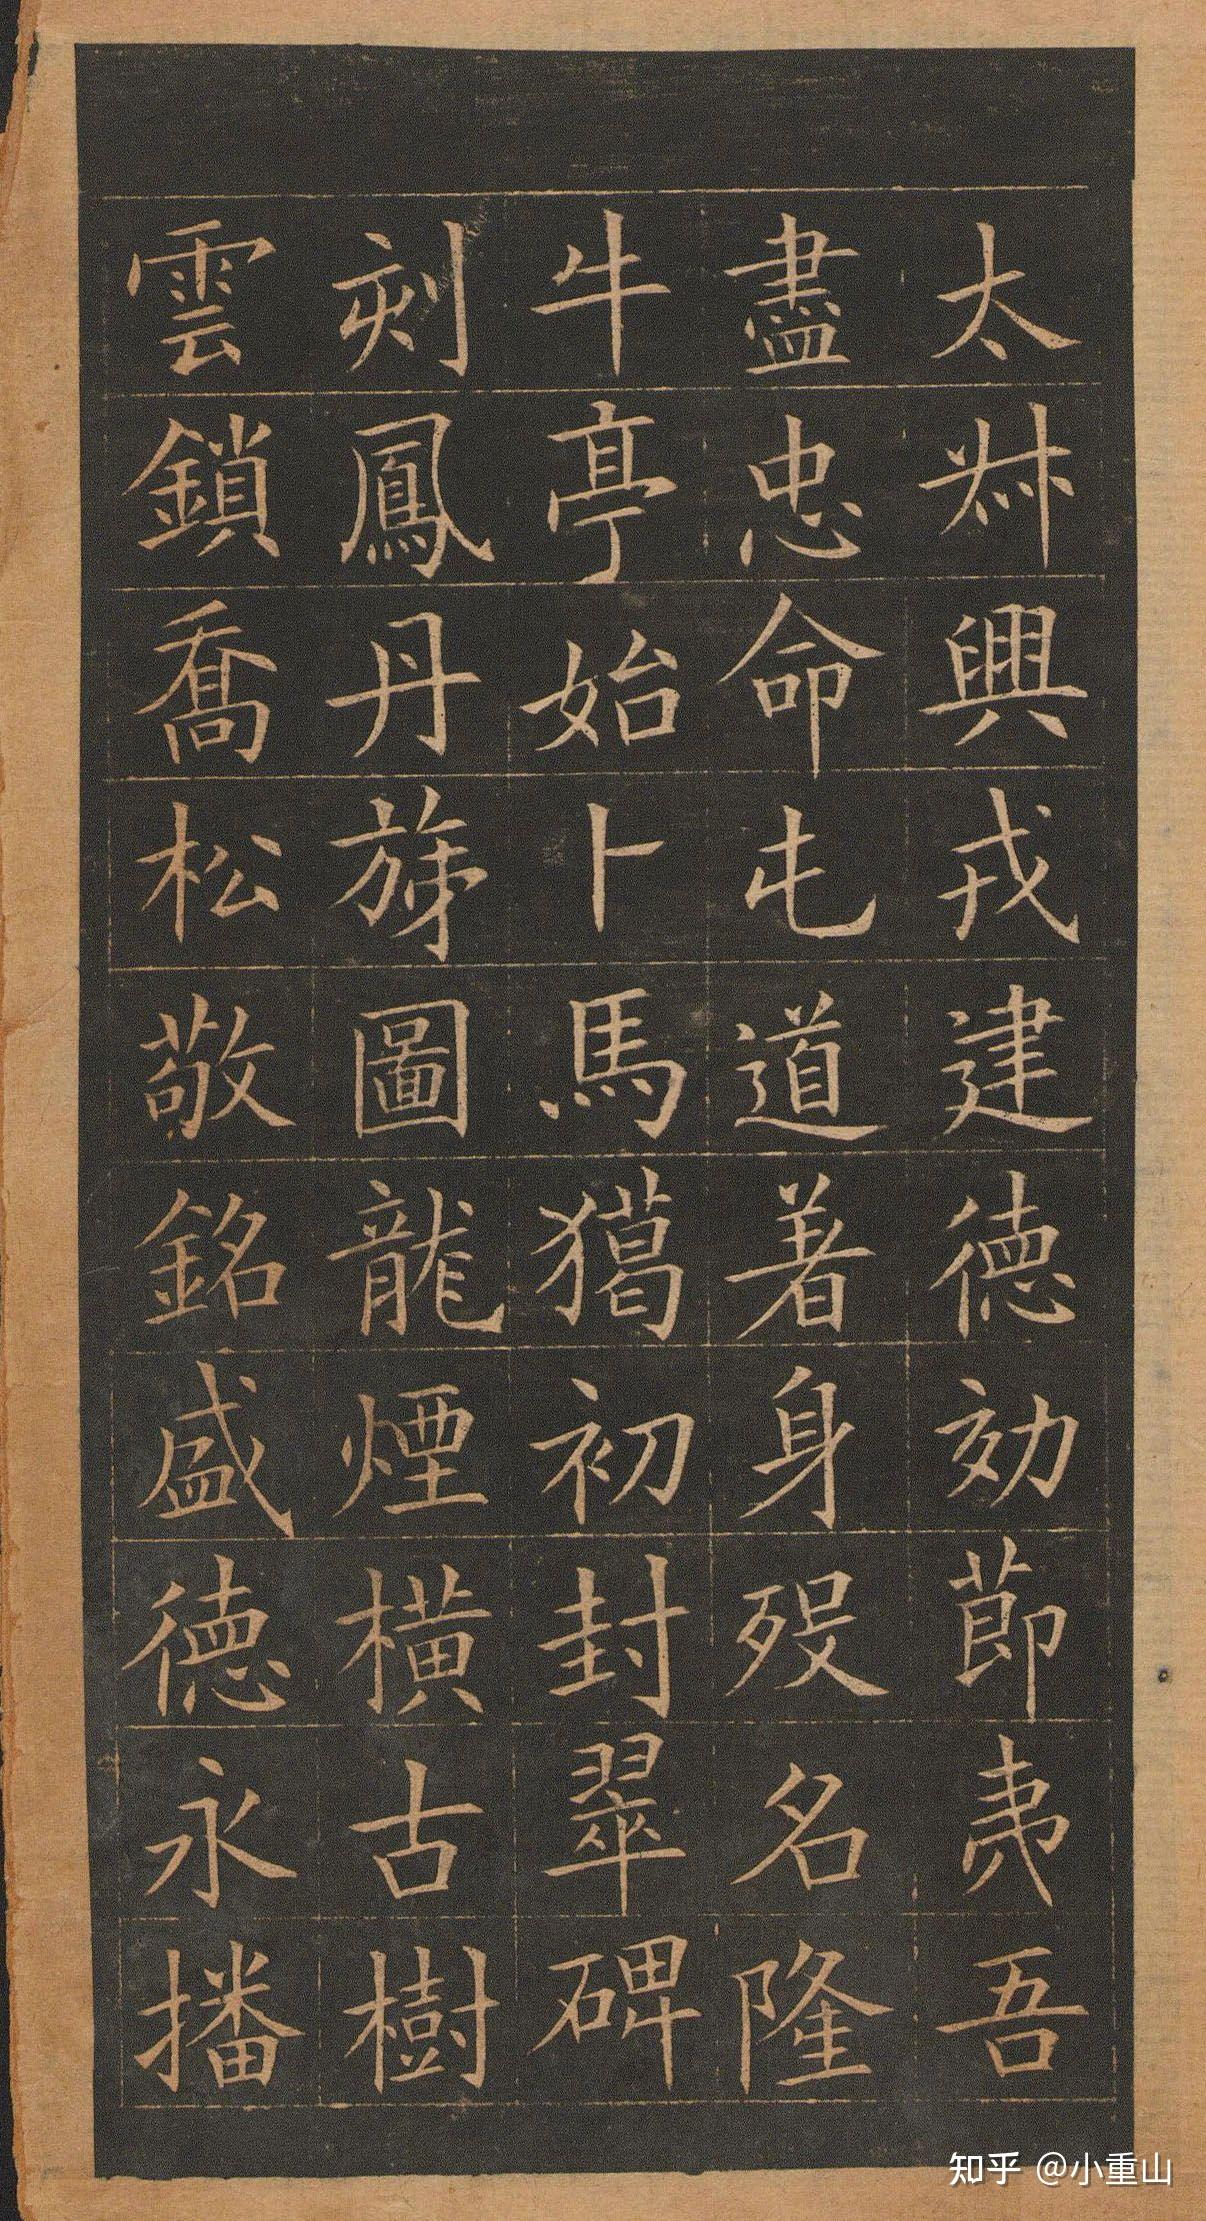 太叔興戎建德効節夷吾
盡忠命屯道着身歿名隆
牛亭始卜馬獦初封翠碑
刻鳳丹旐圖龍煙橫古樹
雲鎖喬松敬銘盛德永播
知乎 @小重山